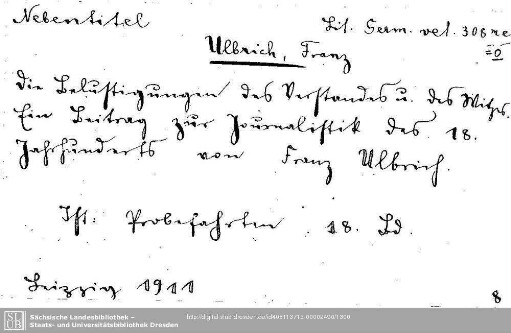 Nebentitel
Lit. Germ. vet. 308 me
=0
Ulbrich, Franz
die Belustigungen des Verstandes u. des Witzes.
Ein Beitrag zur Journalistik des 18.
Jahrhunderts von Franz Ulbrich.
Ist: Probefahrten 18. Bd.
Leipzig 1911
8
SLUB
Sächsische Landesbibliothek –
Staats- und Universitätsbibliothek Dresden